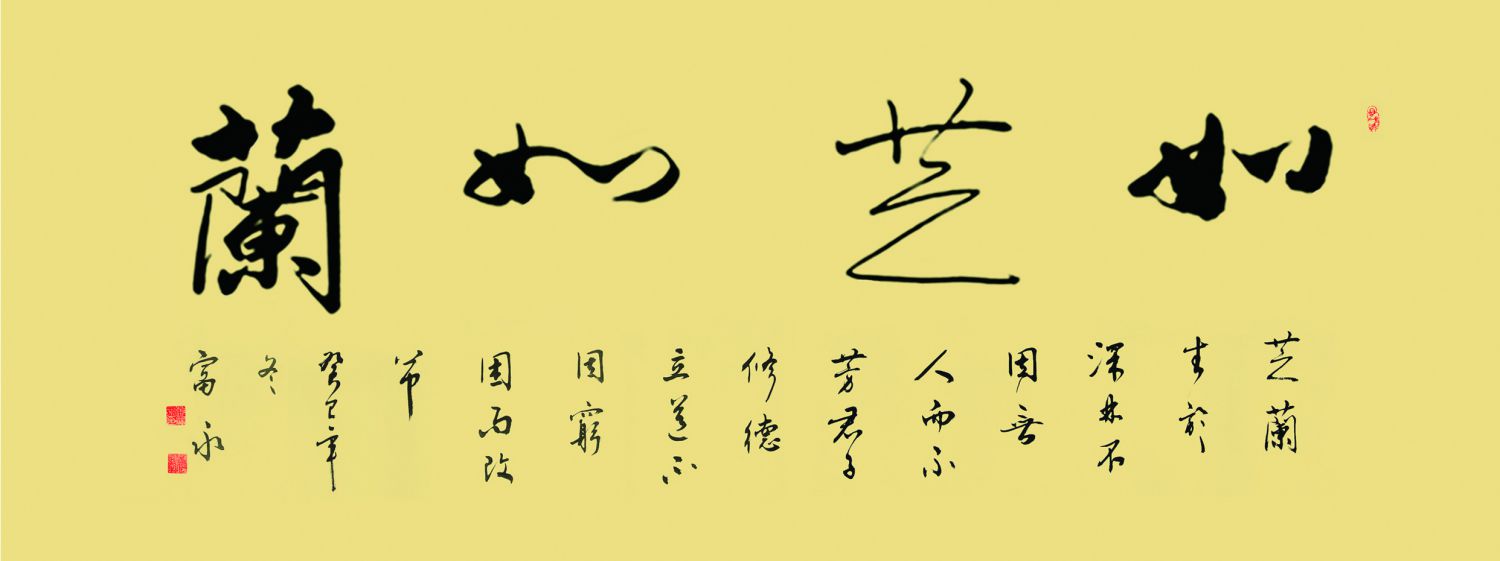 如芝如蘭
芝蘭
生於
深林不
因無
人而不
芳君子
修德
立道不
因窮
困而改
節
癸巳年
冬
富永